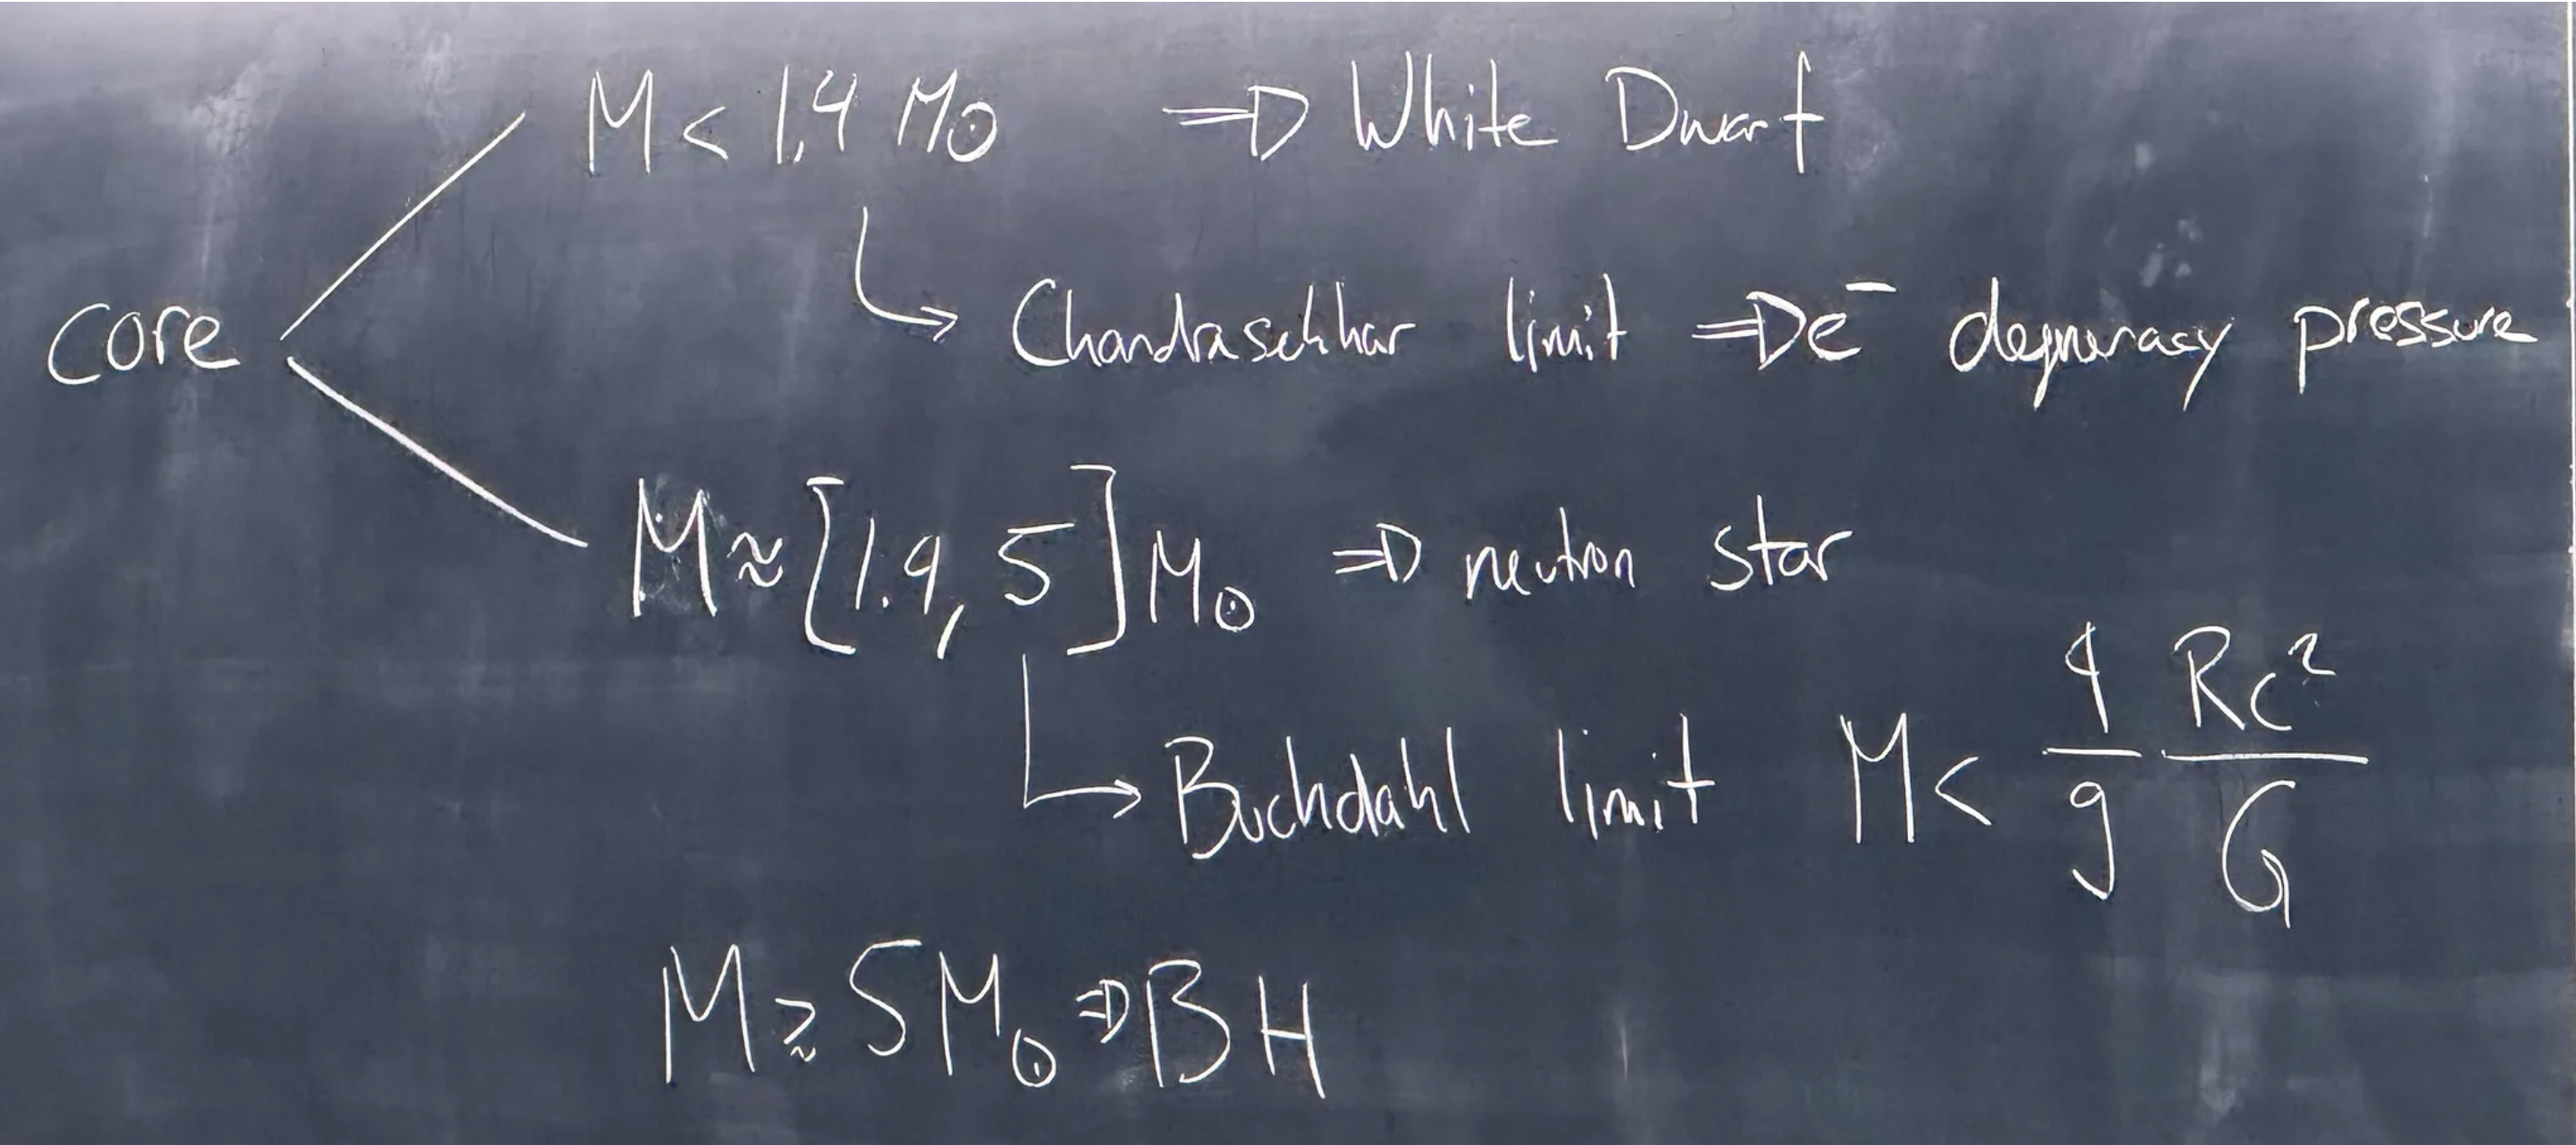 M < 1,4 M⊙ ⇒ White Dwarf
core
↳ Chandraschhar limit ⇒ e⁻ degneracy pressure
M ≈ [1.4, 5] M⊙ ⇒ neutron star
↳ Buchdahl limit M < 4/9 Rc²/G
M ≳ 5 M⊙ ⇒ BH